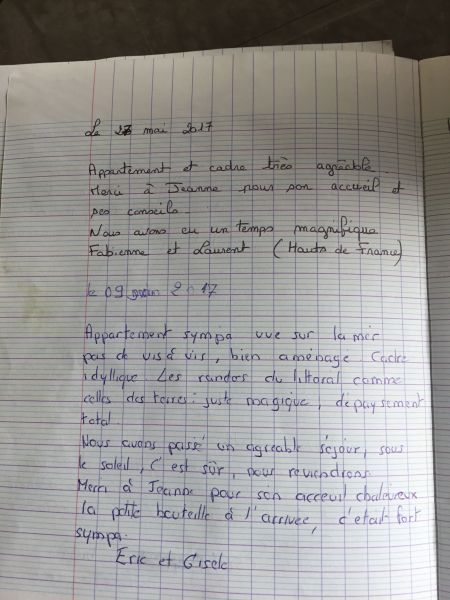 Le 27 mai 2017
Appartement et cadre très agréable.
Merci à Jeanne pour son accueil et
ses conseils.
Nous avons eu un temps magnifique
Fabienne et Laurent (Hauts de France)
le 09 juin 2017
Appartement sympa vue sur la mer
pas de vis à vis, bien aménage Cadre
idyllique. Les randos du littoral comme
celles des terres : juste magique, dépaysement
total.
Nous avons passé un agréable séjour, sous
le soleil, C'est sûr, nous reviendrons
Merci à Jeanne pour son acceuil chaleureux
la petite bouteille à l'arrivée, c'était fort
sympa.
Eric et Gisèle